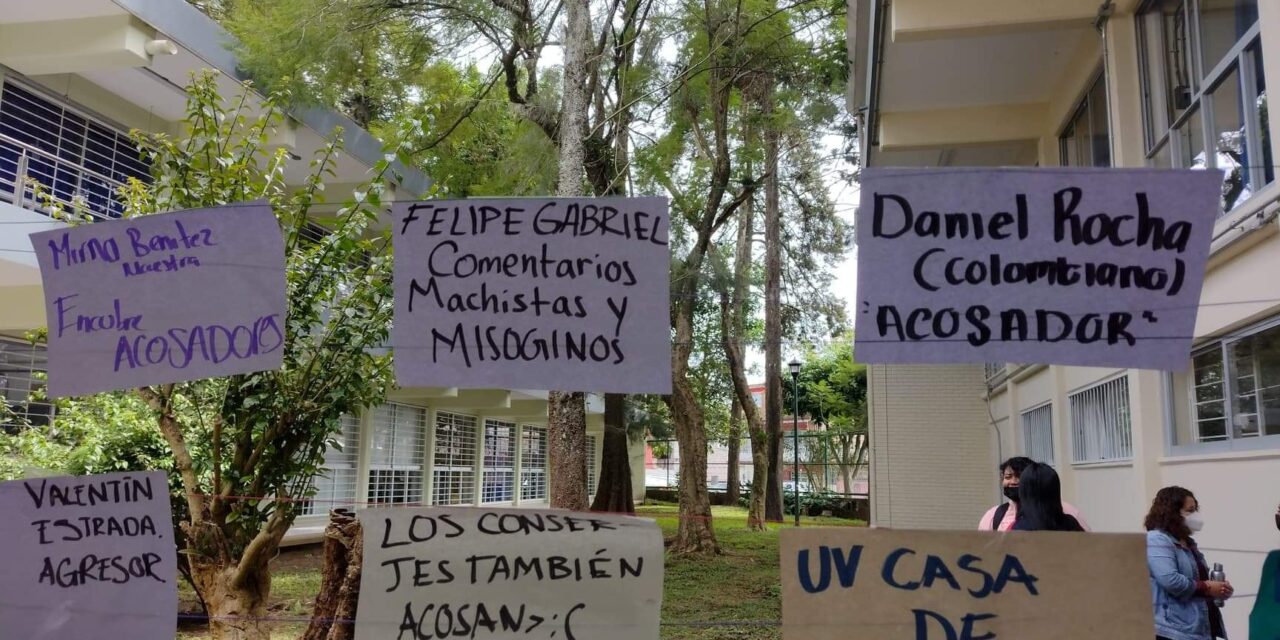 Mirna Benitez
Maestra
Encubre
ACOSADORES
FELIPE GABRIEL
Comentarios
Machistas y
MISOGINOS
Daniel Rocha
(Colombiano)
"ACOSADOR"
VALENTÍN
ESTRADA.
AGRESOR
LOS CONSER-
JES TAMBIÉN
ACOSAN >:(
UV CASA
DE